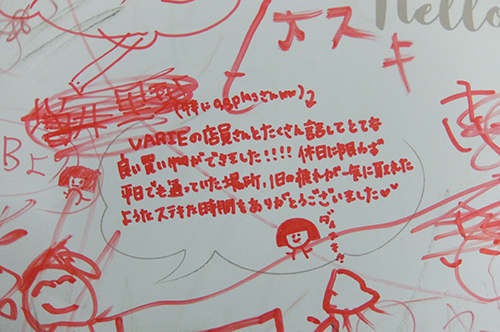 Hello
ホスキ
(特にagplusさんww)
VARIEの店員さんとたくさん話してとても
良い買い物ができました!!!! 休日に限らず
平日でも通っていた場所、1日の疲れが一気に取れた
ようなステキな時間をありがとうございました♡♡